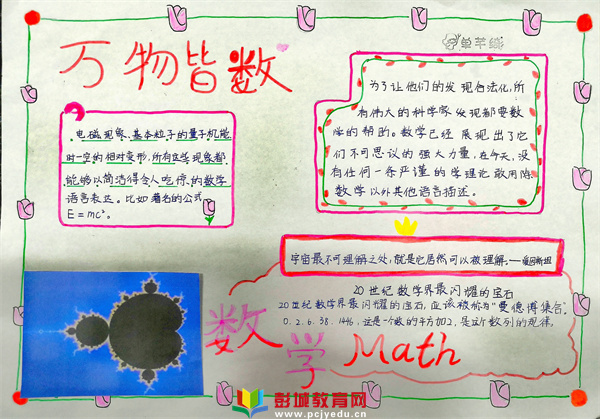 万物皆数
电磁现象、基本粒子的量子机能
时一空的相对变形，所有这些现象都
能够以简洁得令人吃惊的数学
语言表达。比如著名的公式
E=mc²。
为了让他们的发现合法化，所
有伟大的科学家发现都要数
学的帮助。数学已经展现出了它
们不可思议的强大力量，在今天，没
有任何一条严谨的学理论敢用除
数学以外其他语言描述。
宇宙最不可理解之处，就是它居然可以被理解。——爱因斯坦
20世纪数学界最闪耀的宝石
20世纪数学界最闪耀的宝石，应该被称为"曼德博集合"。
0.2.6.38.1446，这是个数的平方加2，是这个数列的规律。
数学 Math
彭城教育网
www.pcjyedu.cn